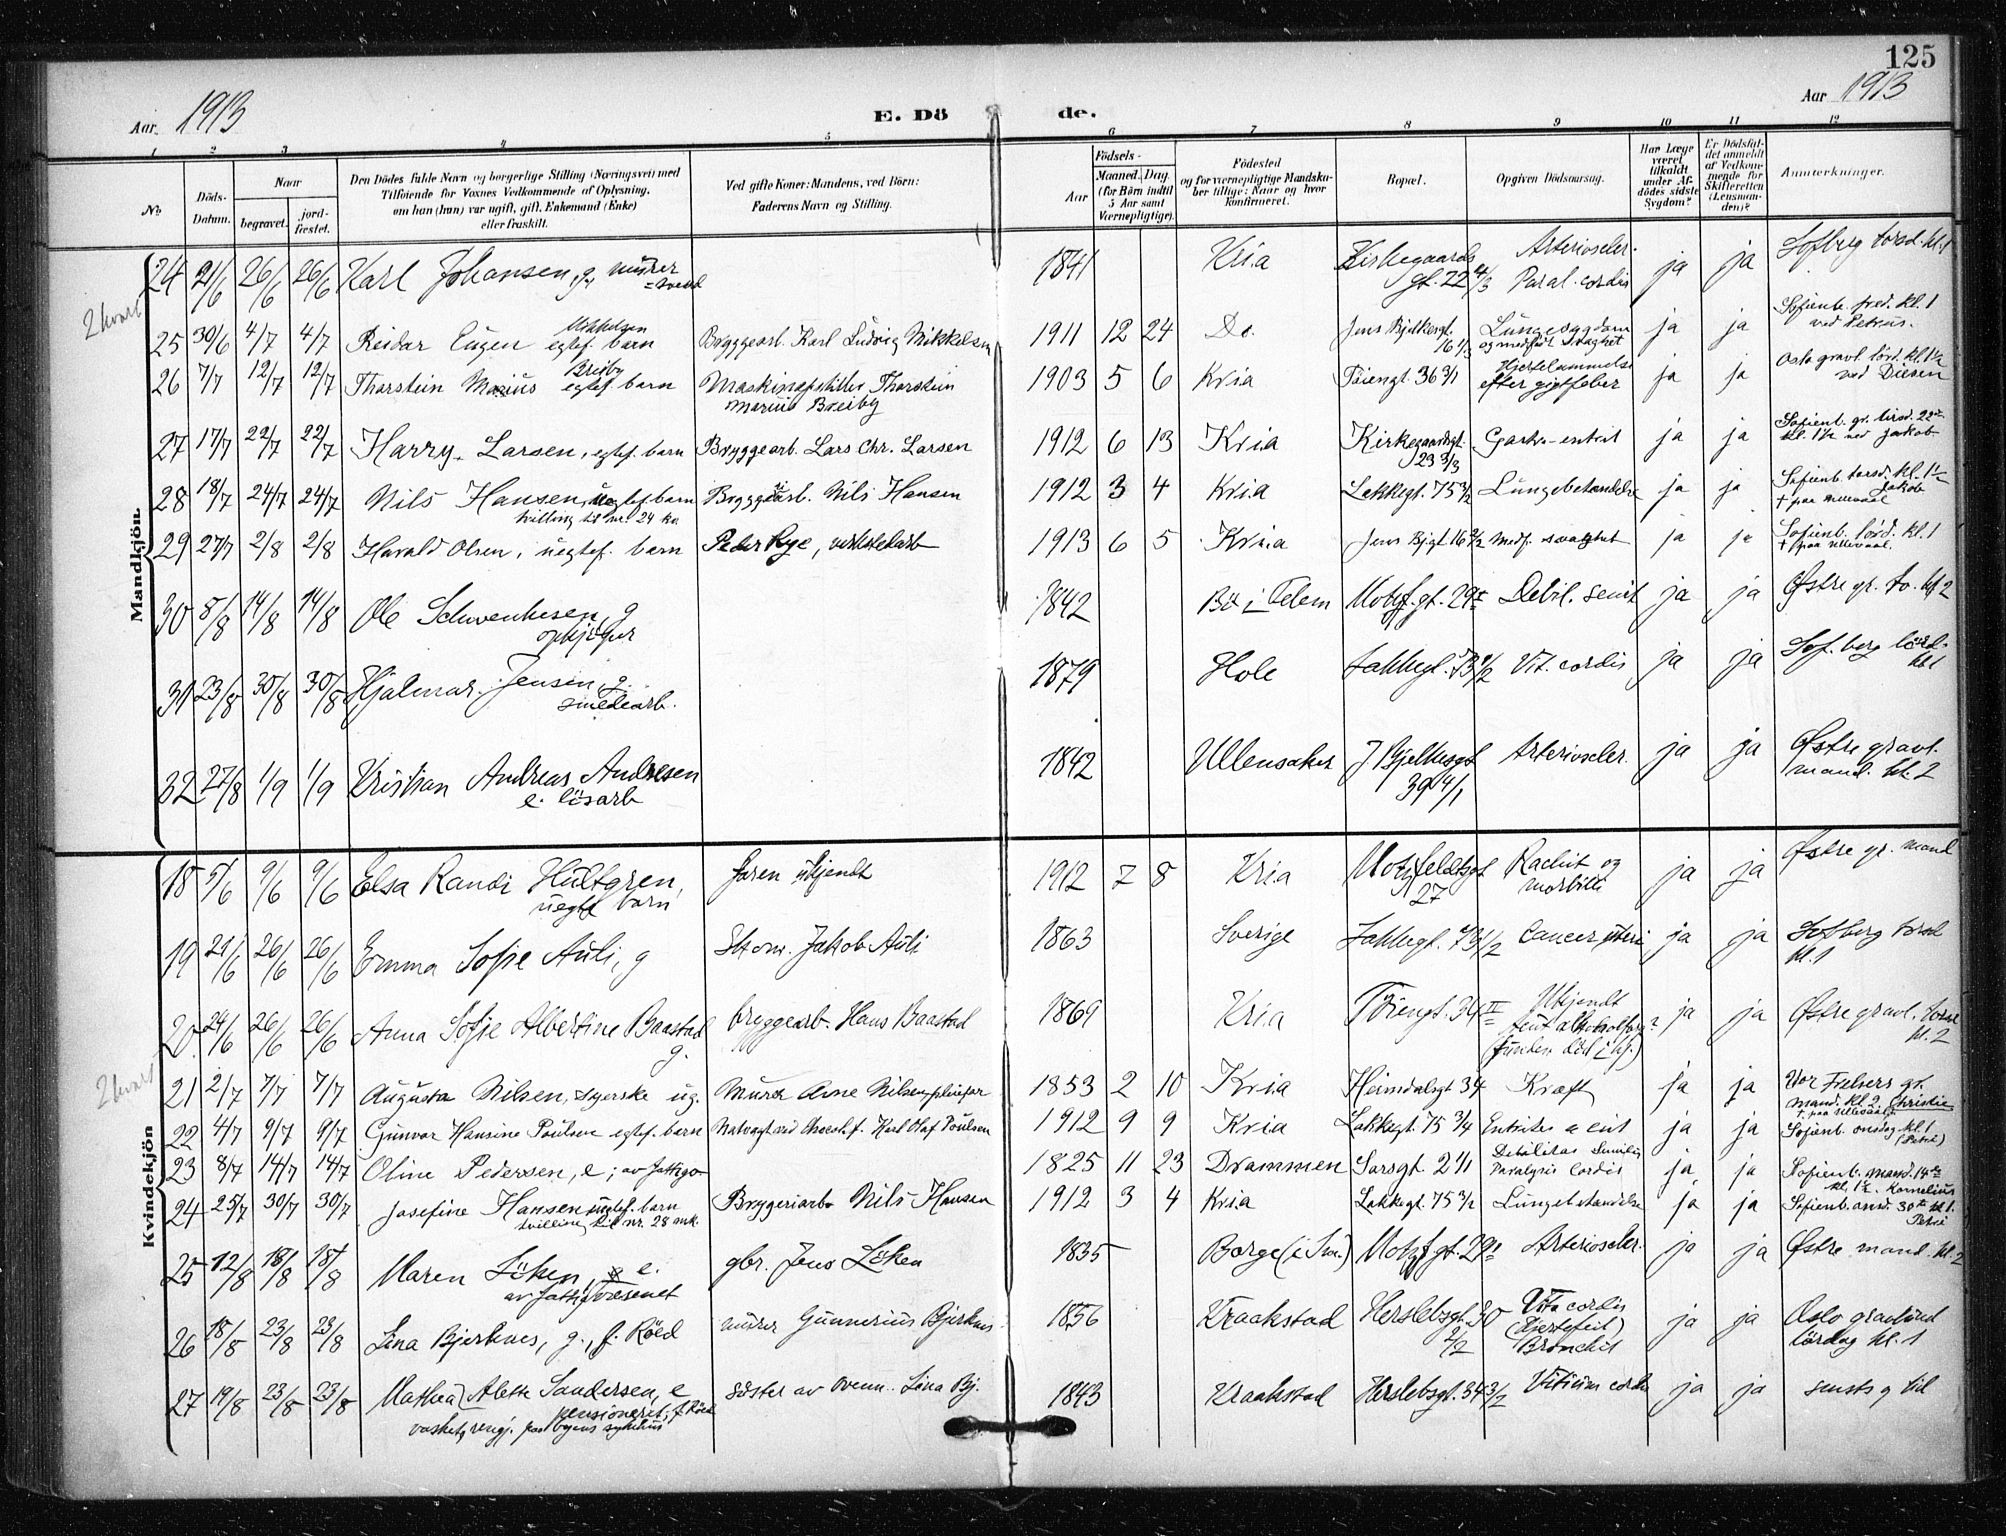 125
Aar 1913
E. Dö de.
Aar 1913
1 2 3 4 5 6 7 8 9 10 11 12
No.
Döds-Datum.
Naar
begravet.
jord-fæstet.
Den Dödes fulde Navn og borgerlige Stilling (Næringsvei) med
Tilföiende for Voxnes Vedkommende af Oplysning,
om han (hun) var ugift, gift, Enkemand (Enke)
eller fraskilt.
Ved gifte Koner: Mandens, ved Börn:
Faderens Navn og Stilling.
Födsels-
Aar
Maaned. Dag.
(for Börn indtil
5 Aar samt
Værnepligtige).
Födested
og for værnepligtige Mandskaber tillige: Naar og hvor konfirmeret.
Bopæl.
Opgiven Dödsaarsag.
Har Læge været tilkaldt under Afdödes sidste Sygdom?
Er Dödsfaldet anmeldt af Vedkommende for Skifteretten (Lensmanden)?
Anmærkninger.
Mandkjön.
24 21/6 26/6 26/6 Karl Johansen, g, murersvend 1841 Kria Kirkegaardsgt. 22 4/3 Arterioscler. Paral. cordis ja ja Sofberg torsd. kl. 1
2 kvart
25 30/6 4/7 4/7 Reidar Eugen Mikkelsen egtef. barn Bryggearb. Karl Ludvig Mikkelsen 1911 12 24 Do. Jens Bjelkesgt. 16 1/3 Lungesygdom og medfødt svaghet ja ja Sofienb. fred. kl. 1 ved Petrus.
26 7/7 12/7 12/7 Thorstein Marius Breiby egtef. barn Maskinopstiller Thorstein Marius Breiby 1903 5 6 Kria Töiengt. 36 3/1 Hjertelammelse efter gigtfeber ja ja Oslo gravl. lörd. kl. 1½ ved Diesen
27 17/7 22/7 22/7 Harry Larsen, egtef. barn Bryggearb. Lars Chr. Larsen 1912 6 13 Kria Kirkegaardsgt. 23 3/3 Gastro-enterit ja ja Sofienb. gr. tirsd. 22de kl. 1½ ved Jakob
28 18/7 24/7 24/7 Nils Hansen, uegtef. barn tvilling til nr. 24 kv. Bryggeriarb. Nils Hansen 1912 3 4 Kria Lakkegt. 75 3/2 Lungebetændelse ja ja Sofienb. torsd. kl. 1½ Jakob † paa Ullevaal
29 27/7 2/8 2/8 Harald Olsen, uegtef. barn Peder Rye, verkstedarb 1913 6 5 Kria Jens Bjgt 16 2/2 Medf. svaghet ja ja Sofienb. lörd. kl. 1 † paa Ullevaal.
30 8/8 14/8 14/8 Ole Schwenkesen, g opkjöper 1842 Bö i Telem Motzf.gt. 29 Debil. senil ja ja Østre gr. to. kl 2
31 23/8 30/8 30/8 Hjalmar Jensen, g. smedearb. 1879 Hole Lakkegt. 73 1/2 Vit. cordis ja ja Sof.berg lörd. kl. 1
32 27/8 1/9 1/9 Kristian Andreas Andresen e. lösarb 1842 Ullensaker J Bjelkesgt 39 4/1 Arterioscler. ja ja Østre gravl. mand. kl. 2
Kvindekjön
18 5/6 9/6 9/6 Elsa Randi Hultgren, uegtef barn faren ukjendt 1912 7 8 Kria Motzfeldtsgt 27 Rachit og morbilli ja ja Østre gr. mand
19 21/6 26/6 26/6 Emma Sofie Auli, g Jakob Auli 1863 Sverige Lakkegt. 73 1/2 Cancer uteri ja ja Sofberg torsd kl. 1
20 24/6 26/6 26/6 Anna Sofie Albertine Baastad g. bryggearb. Hans Baastad 1869 Kria Töiengt. 34 II Ukjendt (funden död i hj.) ja ja Østre gravl. torsd kl. 2
2 kvart
21 2/7 7/7 7/7 Augusta Nilsen, syerske ug. Murer Arne Nilsen 1853 2 10 Kria Heimdalsgt 34 Kræft ja ja Vor Frelsers gr. mand. kl. 2. Christie † paa Ullevaal
22 4/7 9/7 9/7 Gunvor Hansine Poulsen egtef. barn Natvagt ved Karl Olaf Poulsen 1912 9 9 Kria Lakkegt. 75 3/4 Entrites a cut ja ja Sofienb. onsdag kl. 1 (Petri)
23 8/7 14/7 14/7 Oline Pedersen, e; av fattigv. 1825 11 23 Drammen Sarsgt. 2 1/1 Debilitas Senilis Paralysis Cordis ja ja Sofienb. mand. 14de kl. 1½. Kornelius
24 25/7 30/7 30/7 Josefine Hansen uegtef. barn tvilling til nr. 28 mk. Bryggeriarb Nils Hansen 1912 3 4 Kria Lakkegt. 75 3/2 Lungebetændelse ja ja Sofienb. onsd. 30te kl. 1. Petri
25 12/8 18/8 18/8 Maren Löken, e. av fattigvæsenet gbr. Jens Löken 1835 Borge (i Sm.) Motzf gt. 29 Arterioscler. ja ja Østre mand. kl. 2
26 18/8 23/8 23/8 Lina Bjerknes, g., f. Röed murer Gunnerius Bjerknes 1856 Kraakstad Herslebsgt. 30 2/2 Vita cordis (Hjertefeil) Bronchit ja ja Oslo gravlund lördag kl. 1
27 19/8 23/8 23/8 Mathea Alette Sandersen, e pensioneret; f. Röed vasket, rengj. paa byens sykehus Söster av ovenn. Lina Bj. 1843 Kraakstad Herslebsgt. 34 3/2 Vitium cordis ja ja